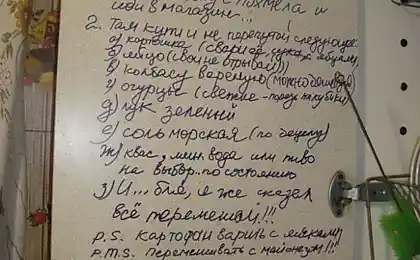 с похмела и
иди в магазин...
2. Там купи и не перепутай следующее:
а) картошка (свари её, сука,
б) яйцо (свои не отрывай))
в) колбасу варёную (можно
г) огурцы (свежие -
д) лук зеленый
е) соль морская (по рецепту)
ж) квас, мин. вода или пиво
на выбор. по состоянию
з) И... бля, я же сказал
всё перемешай!!!
P.S. картофан варить с яйсками
P.P.S. перемешивать с майонезом!!!